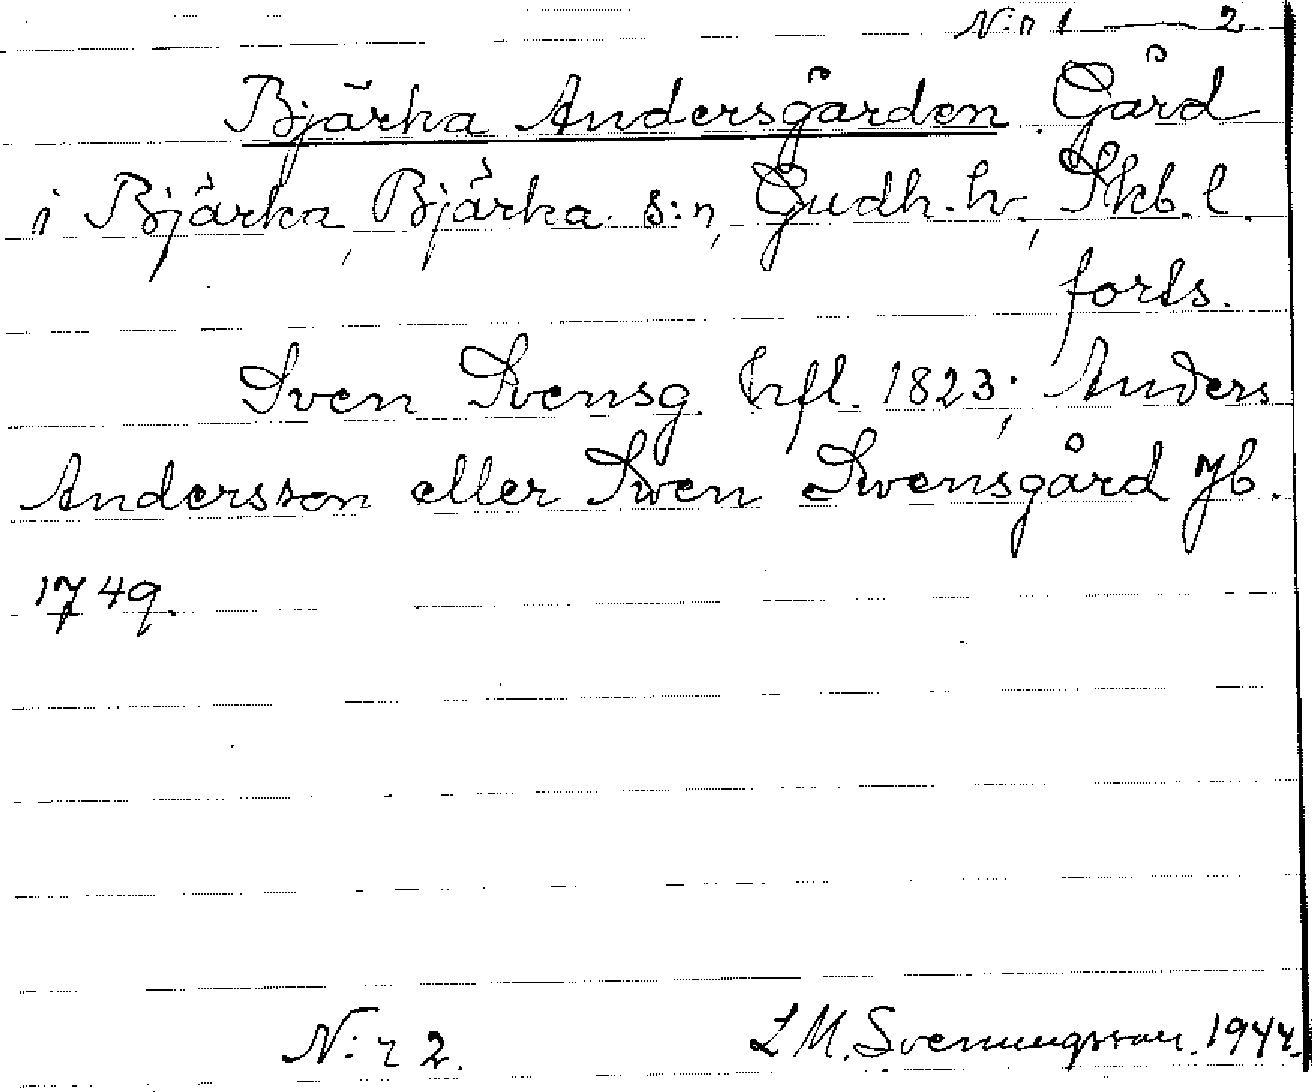 N:r 1 — 2.
Bjärka Andersgården Gård
i Bjärka, Bjärka s:n, Gudh. h., Skb. l.
forts.
Sven Svensg. hfl. 1823; Anders
Andersson eller Swen Swensgård Jb.
1749.
N:r 2. L M. Svenungsson. 1944.